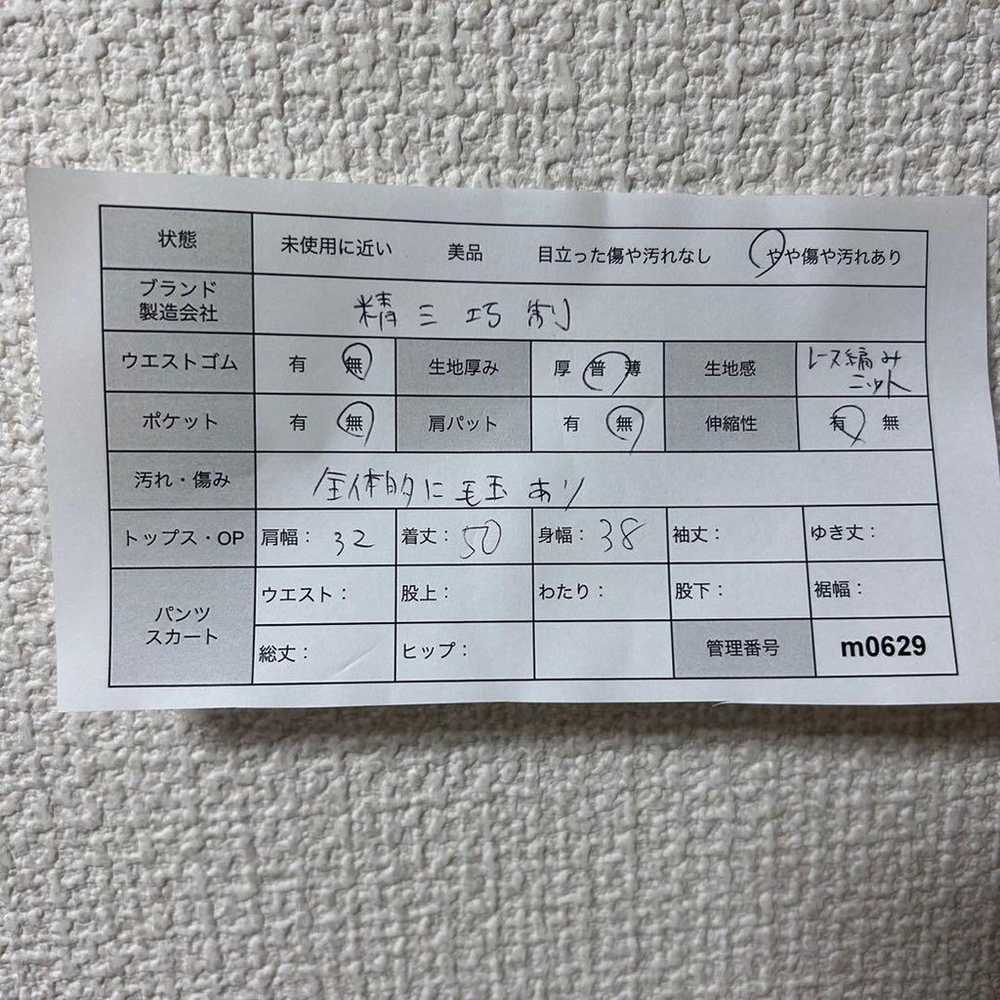 状態 未使用に近い 美品 目立った傷や汚れなし やや傷や汚れあり
ブランド
製造会社 精三巧制
ウエストゴム 有 無 生地厚み 厚 普 薄 生地感 レース編み
ニット
ポケット 有 無 肩パット 有 無 伸縮性 有 無
汚れ・傷み 全体的に毛玉あり
トップス・OP 肩幅：32 着丈：50 身幅：38 袖丈： ゆき丈：
パンツ
スカート
ウエスト： 股上： わたり： 股下： 裾幅：
総丈： ヒップ： 管理番号 m0629